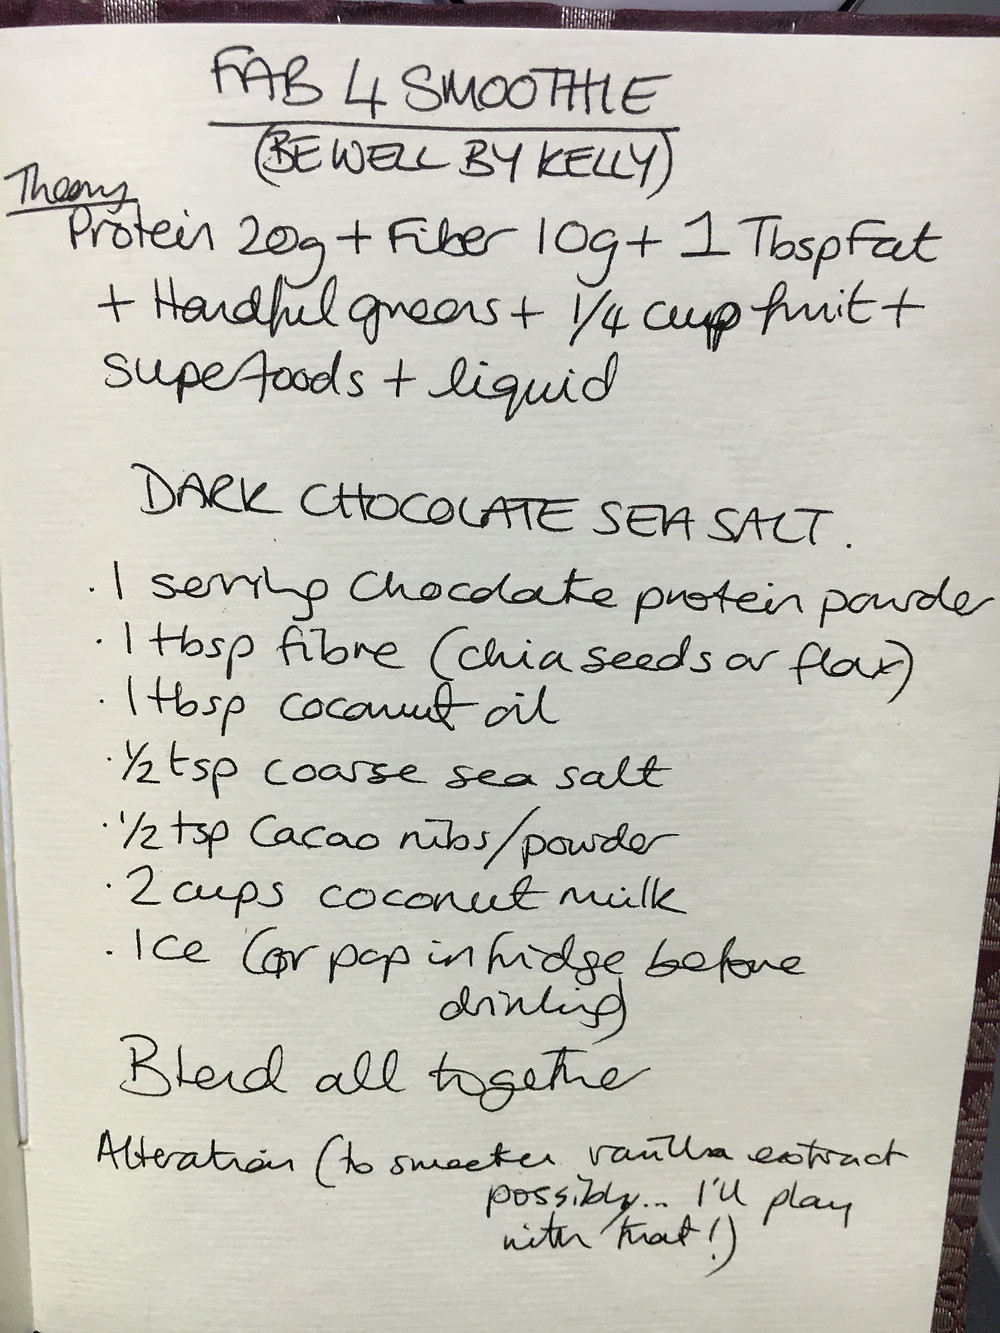 FAB 4 SMOOTHIE
(BE WELL BY KELLY)
Theory
Protein 20g + Fiber 10g + 1 Tbsp Fat
+ Handful greens + 1/4 cup fruit +
superfoods + liquid
DARK CHOCOLATE SEA SALT.
· 1 serving Chocolate protein powder
· 1 tbsp fibre (chia seeds or flax)
· 1 tbsp coconut oil
· 1/2 tsp coarse sea salt
· 1/2 tsp Cacao nibs/powder
· 2 cups coconut milk
· Ice (or pop in fridge before
drinking)
Blend all together
Alteration (to sweeten vanilla extract
possibly... I'll play
with that!)